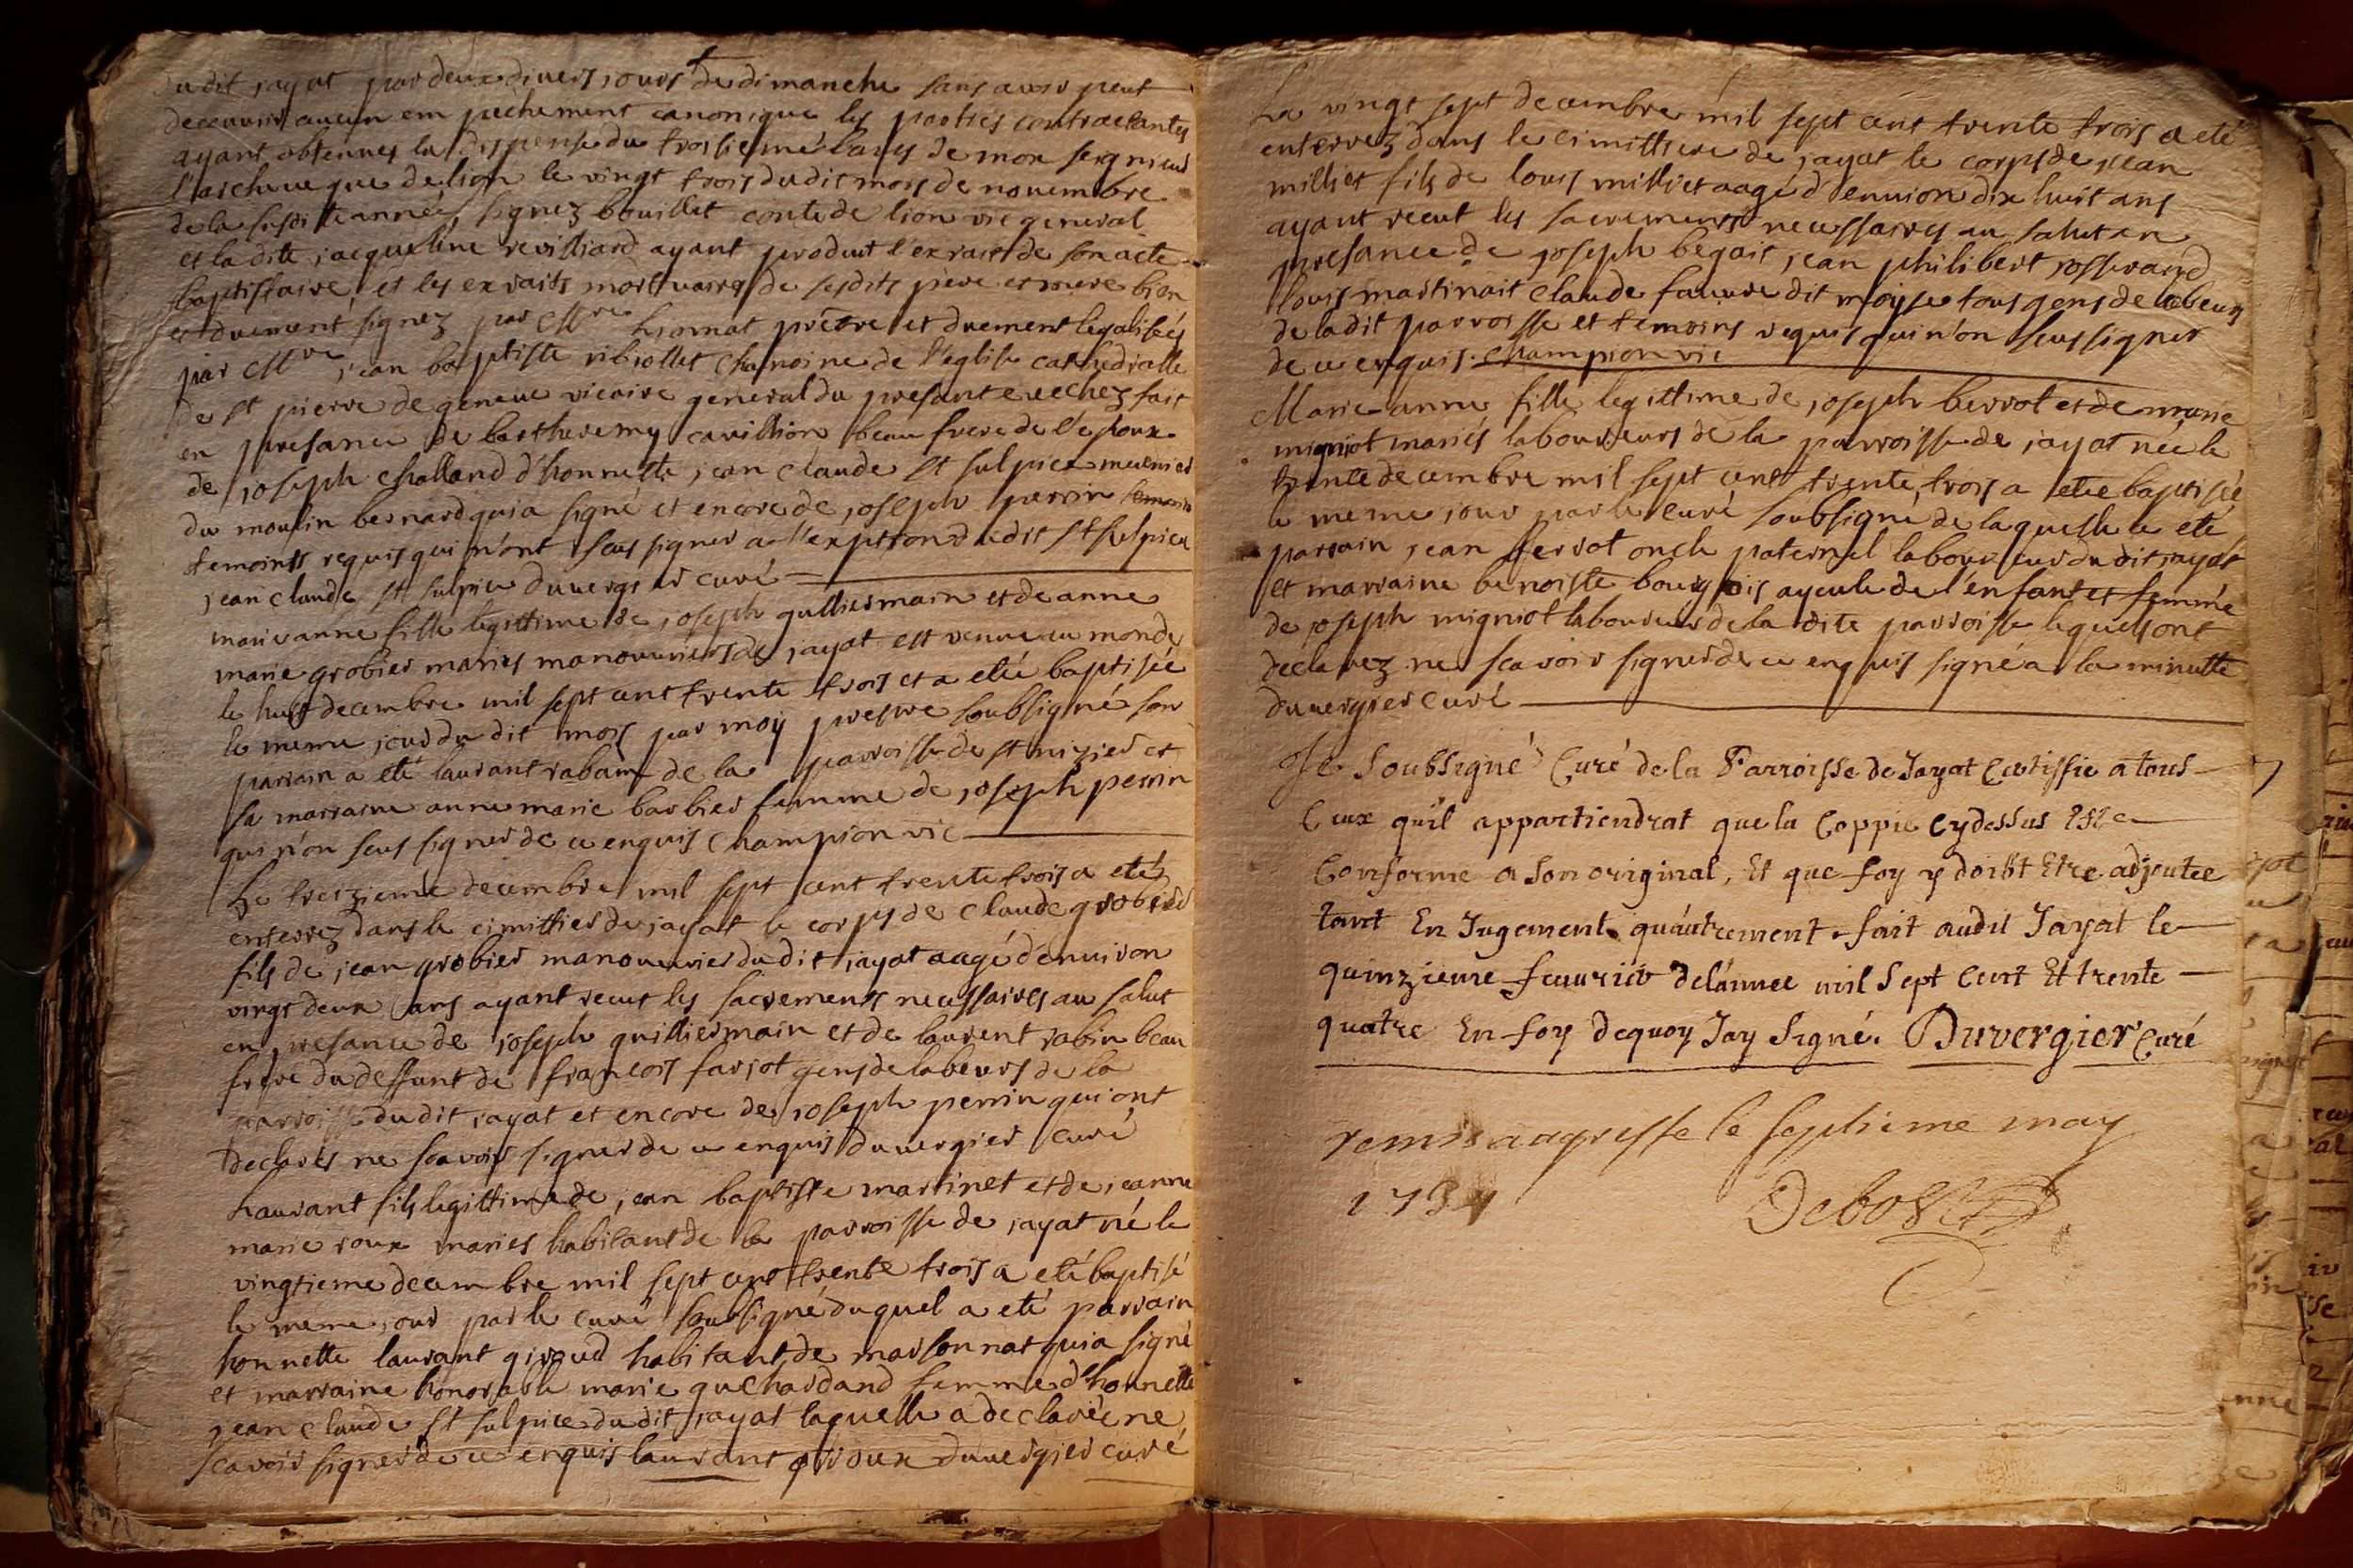 dudit jayat par deux divers jours de dimanche sans avoir peut
decouvrir aucun empechement canonique les parties contractantes
ayant obtenues la dispense du troisieme bans de mon seigneur
l'archeveque de lion le vingt trois dudit mois de novembre
de la susditte année, signez bouillet conte de lion vic general
et la dite jacqueline revilliard ayant produit l'exrait de son acte
baptistaire, et les exraits mortuaires de sesdits père et mere bien
et duement signez par Mre prêtre et duement legalisés
par Mre jean baptiste ribiollet chanoine de l'eglise cathedralle
de st pierre de geneve vicaire general du presant evechez fait
en presance de bartheremy cavillion beau frere de l'epoux
de joseph challand d'honneste jean claude st sulpice meunier
du moulin bernard qui a signé et encore de joseph perrin
temoints requis qui n'ont sçus signer a l'exption dudit st sulpice
jean claude st sulpice duvergier curé
marie anne fille legittime de joseph gulliermain et de anne
marie grobier mariés manouvriers de jayat est venue au monde
le huit decembre mil sept cent trente trois et a eté baptisée
le meme jour du dit mois par moy prestre soubsigné son
parrain a eté laurant rabam de la parroisse de st nizier et
sa marraine anne marie barbier femme de joseph perrin
qui n'on sçus signer de ce enquis Champion vic
Le treizieme decembre mil sept cent trente trois a eté
enterrez dans le cimittier de jayat le corps de Claude grobier
fils de jean grobier manouvrier du dit jayat aagé d'environ
vingt deux ans ayant recut les sacrements necessaires au salut
en presance de joseph guilliermain et de laurent rabin beau
frere du deffunt de françois farjot gens de labeurs de la
parroisse du dit jayat et encore de joseph perrin qui ont
declarés ne sçavoir signer de ce enquis duvergier curé
Laurant fils legittime de jean baptiste martinet et de jeanne
marie roux mariés habitant de la parroisse de jayat né le
vingtieme decembre mil sept cent trente trois a eté baptisé
le meme jour par le curé soubsigné duquel a eté parrain
honnette laurant giroud habitant de marsonnat qui a signé
et marraine honorable marie guchardand femme d'honnette
jean claude st sulpice du dit jayat laquelle a declarée ne
scavoir signer de ce enquis laurant giroux duvergier curé
Le vingt sept decembre mil sept cent trente trois a eté
enterrez dans le cimittiere de jayat le corps de jean
milliet fils de louis milliet aagé d'environ dix huit ans
ayant recut les sacrements necessaires au salut en
presance de joseph begait jean philibert josserand
louis martinait claude favure dit moyse tous gens de labeurs
de ladit parroisse et temoins requis qui n'on sçus signer
de ce enquis. Champion vic
Marie-anne fille legittime de joseph berrot et de marie
migniot mariés laboureurs de la parroisse de jayat née le
trente decembre mil sept cent trente trois a eté baptisée
le meme jour par le curé soubsigné de laquelle a eté
parrain jean berrot oncle paternel laboureur du dit jayat
et marraine benoiste bourgois ayeule de l'enfant et femme
de joseph migniot laboureur de la dite parroisse lequels ont
déclarez ne scavoir signer de ce enquis signé a la minutte
duvergier curé
Je Soubsigné Curé de la Parroisse de Jayat Certiffie a tous
Ceux qu'il appartiendrat que la Coppie Cydessus Est
Conforme a Son original, Et que foy y doibt Etre adjoutee
tant En Jugement qu'autrement. fait audit Jayat le
quinzieme feuvrier de l'annee mil Sept Cent Et trente
quatre En foy dequoy Jay Signé. Duvergier Curé
remis au greffe le septieme may
1734 Debost